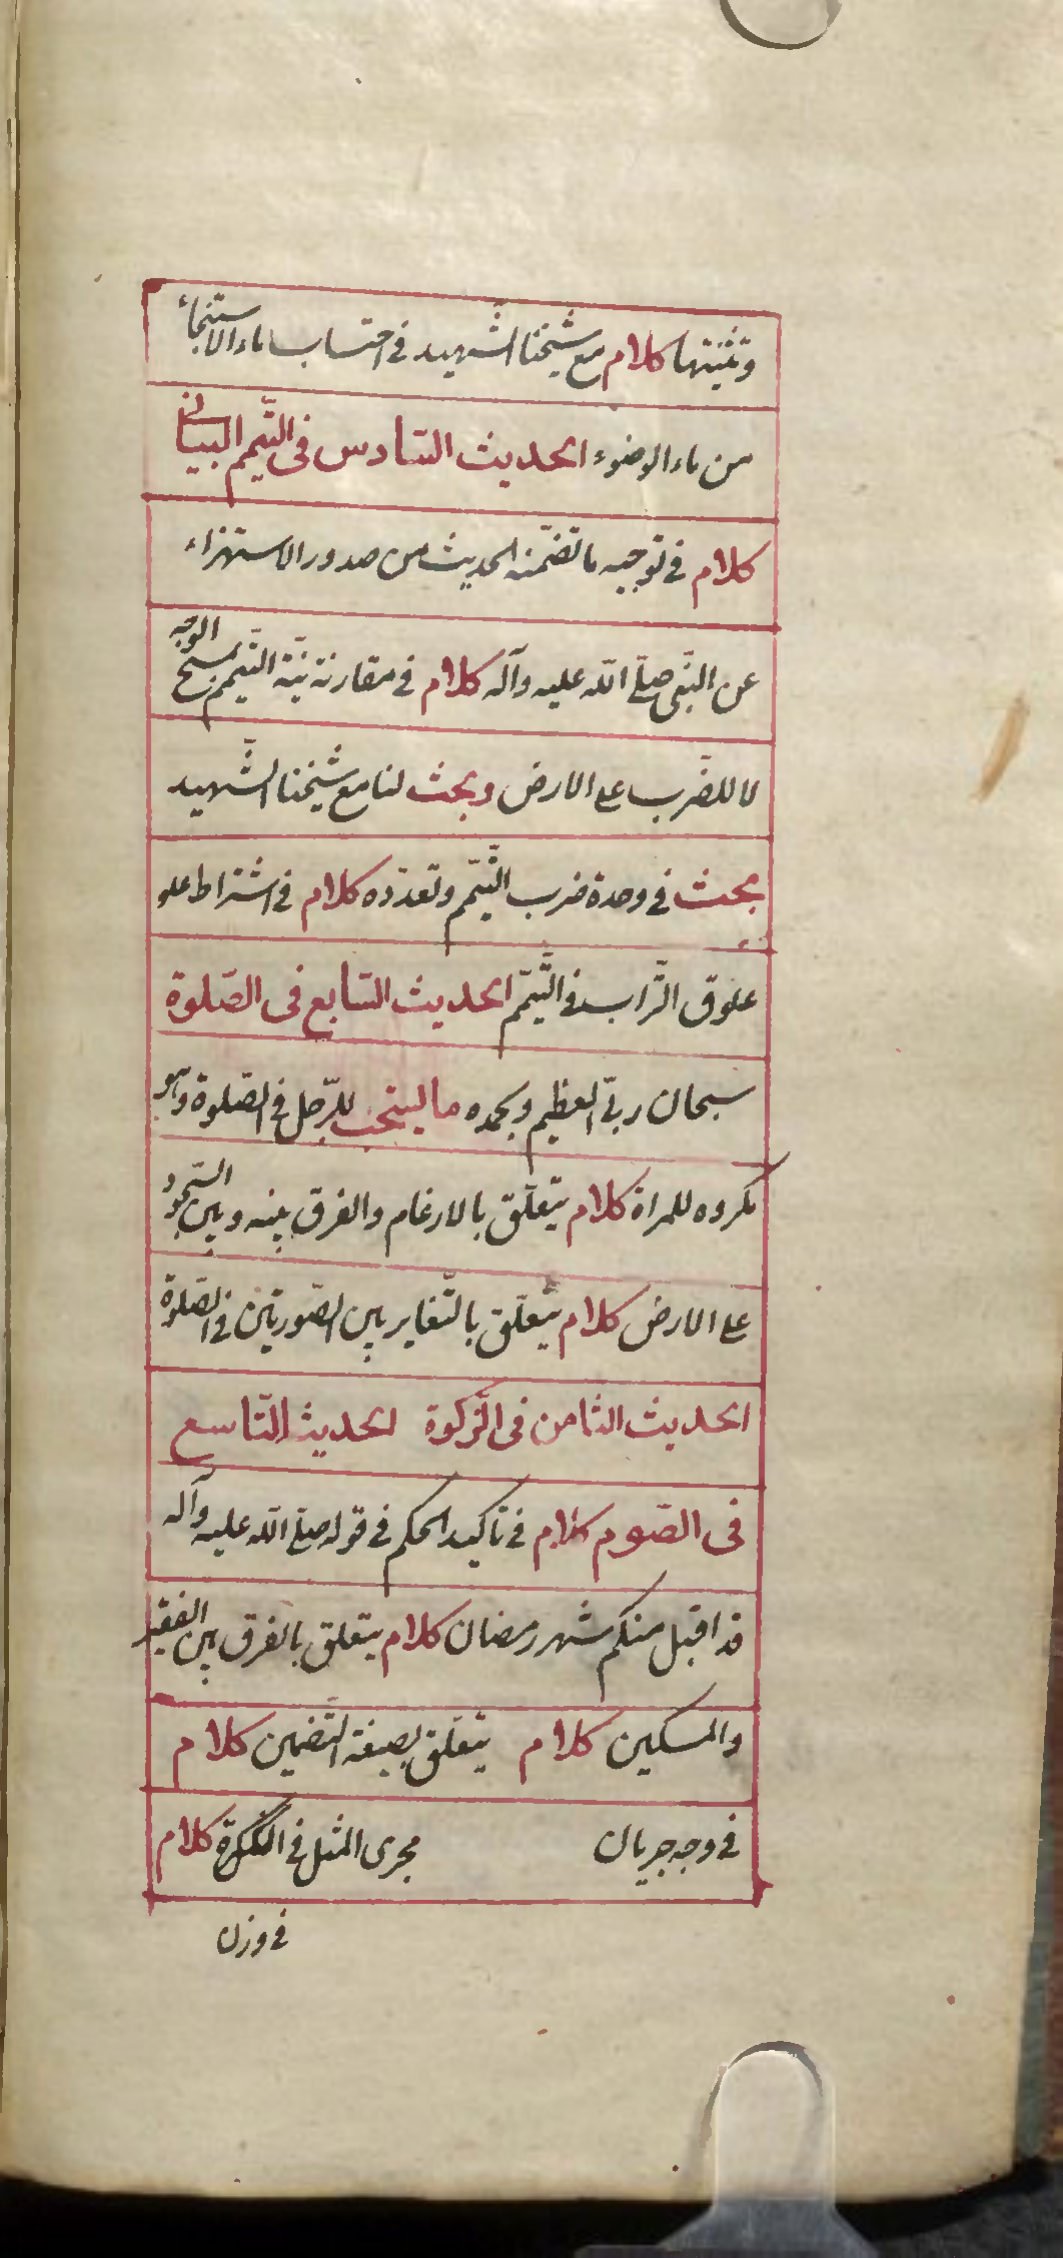 وتثنيتها كلام مع شيخنا الشهيد في احتساب ماء الاستنجاء
من ماء الوضوء الحديث السّادس فى التّيمم البياني
كلام في توجيه ما تضمّنه الحديث من صدور الاستهزاء
عن النّبى صلّى اللّه عليه وآله كلام في مقارنة نيّة التّيمم بمسح الوجه
لا للضّرب على الارض وبحث لنا مع شيخنا الشّهيد
بحث في وحدة ضرب التّيمّم وتعدّده كلام في اشتراط علو
علوق التّراب في التّيمّم الحديث السّابع فى الصّلوة
سبحان ربّى العظيم وبحمده ما يستحب للرّجل في الصّلوة وهو
مكروه للمراة كلام يتعلّق بالارغام والفرق بينه وبين السّجود
على الارض كلام يتعلّق بالتّغاير بين الصّورتين في الصّلوة
الحديث الثامن فى الزّكوة الحديث التّاسع
فى الصّوم كلام في تاكيد الحكم في قوله صلّى اللّه عليه وآله
قد اقبل منكم شهر رمضان كلام يتعلق بالفرق بين الفقير
والمسكين كلام يتعلّق بصيغة التّضمين كلام
في وجه جريان مجرى المثل في كلام
في وزن